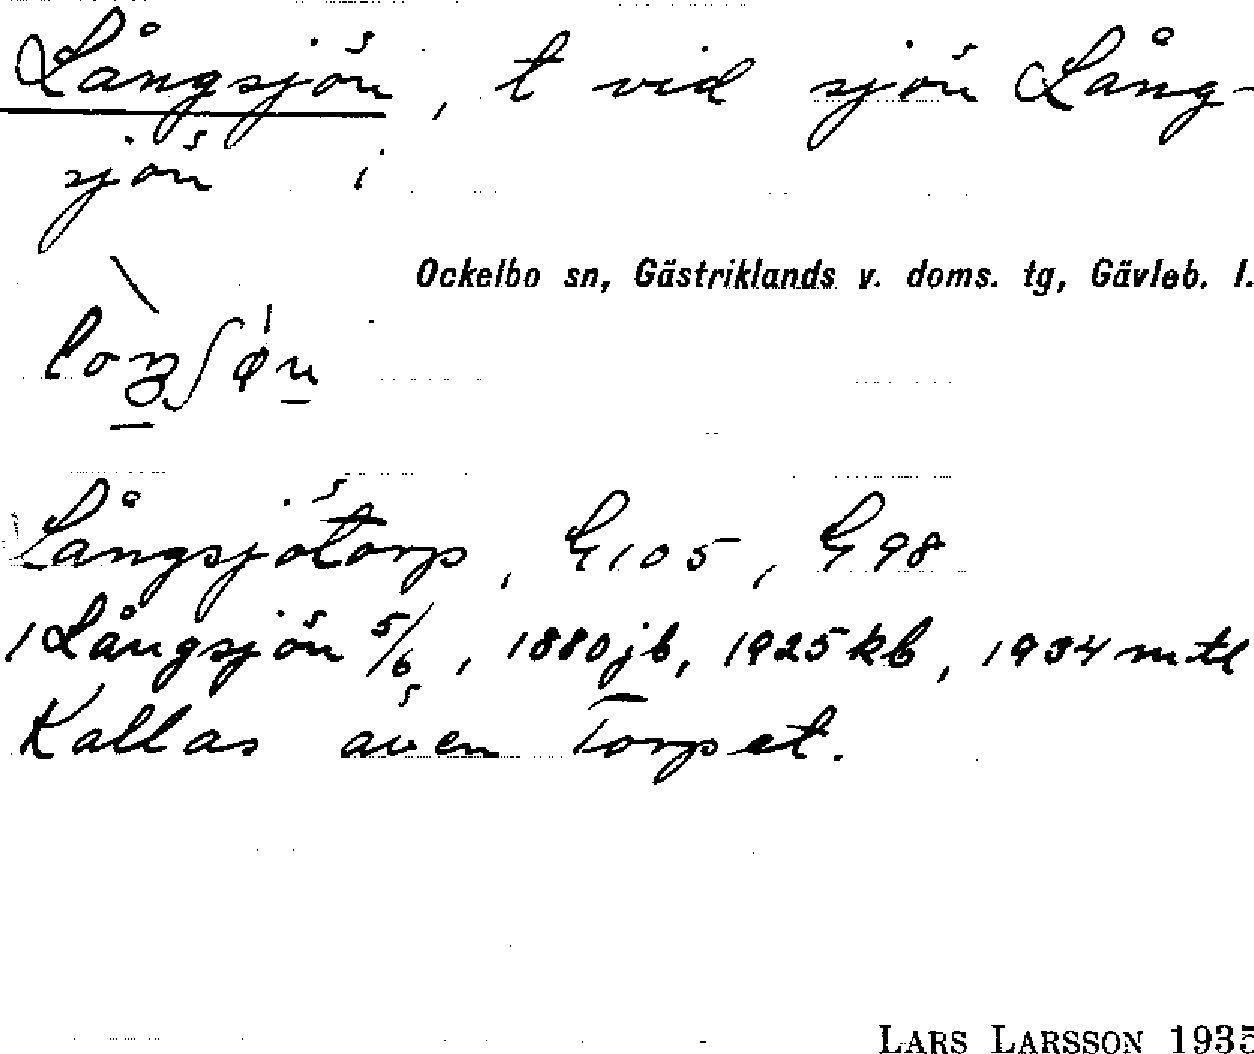 Långsjön, t vid sjön Lång-
sjön i
Ockelbo sn, Gästriklands v. doms. tg, Gävleb. l.
Långsjötorp, G105, G98
1 Långsjön 5/6, 1880 jb, 1925 kb, 1934 mtl
Kallas även Torpet.
LARS LARSSON 1935